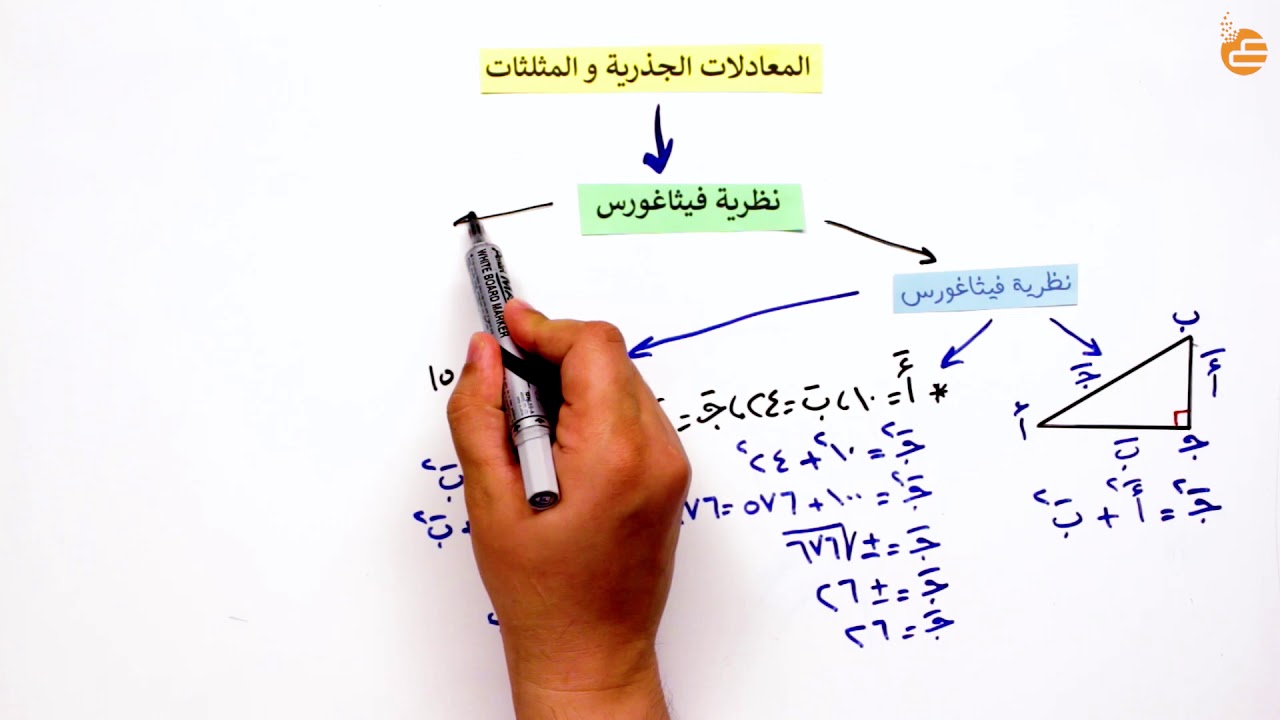 المعادلات الجذرية و المثلثات
نظرية فيثاغورس
نظرية فيثاغورس
ب
أَ
جَ
أ
بَ
جـ
جَـ² = أَ² + بَ²
* أَ = ١٠، بَ = ٢٤، جَـ =
جَـ² = ١٠² + ٢٤²
جَـ² = ١٠٠ + ٥٧٦ = ٦٧٦
جَـ = ± √٦٧٦
جَـ = ± ٢٦
جَـ = ٢٦
١٥
بَ²
+ بَ²
WHITE BOARD MARKER